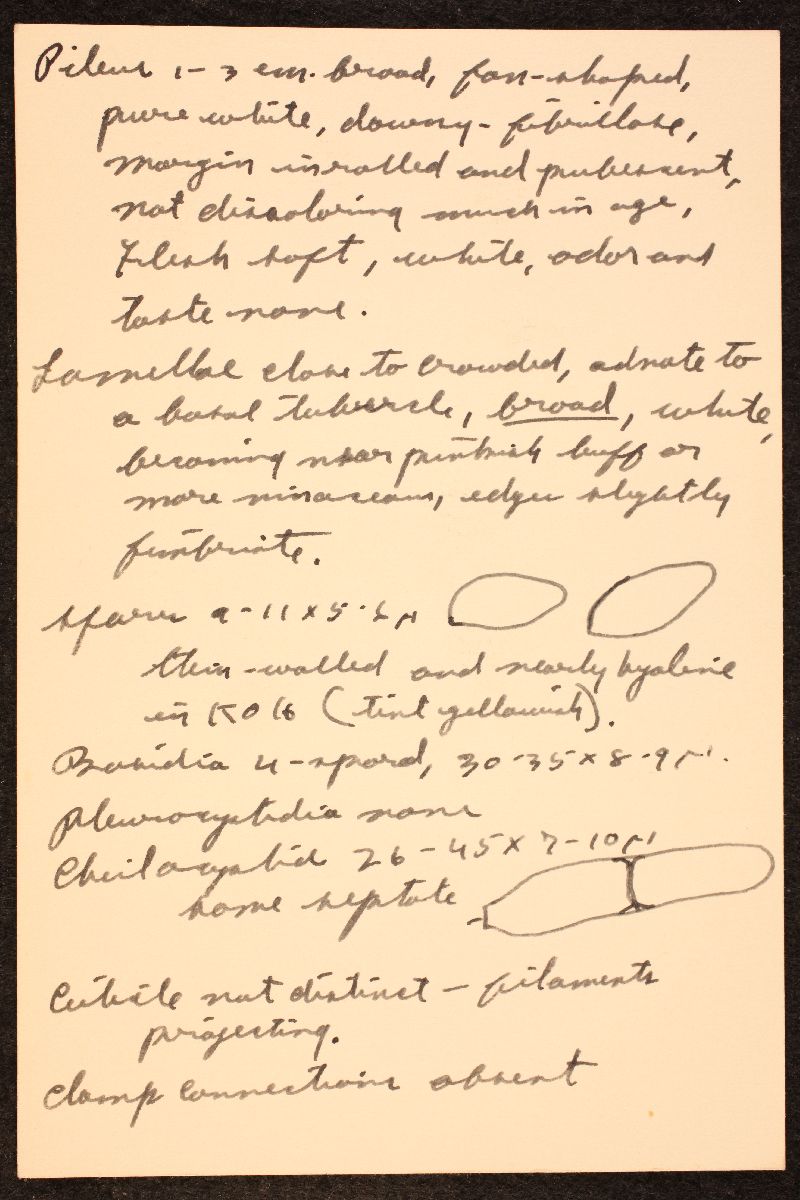 Pileus 1-3 cm. broad, fan-shaped,
pure white, downy-fibrillose,
margin inrolled and pubescent,
not discoloring much in age,
Flesh soft, white, odor and
taste none.
Lamellae close to crowded, adnate to
a basal tubercle, broad, white,
becoming near pinkish buff or
more vinaceous, edges slightly
fimbriate.
Spores 9-11 x 5-6 µ
thin-walled and nearly hyaline
in KOH (tint yellowish).
Basidia 4-spored, 30-35 x 8-9 µ.
Pleurocystidia none
Cheilocystid 26-45 x 7-10 µ
some septate
Cuticle not distinct - filaments
projecting.
Clamp connections absent